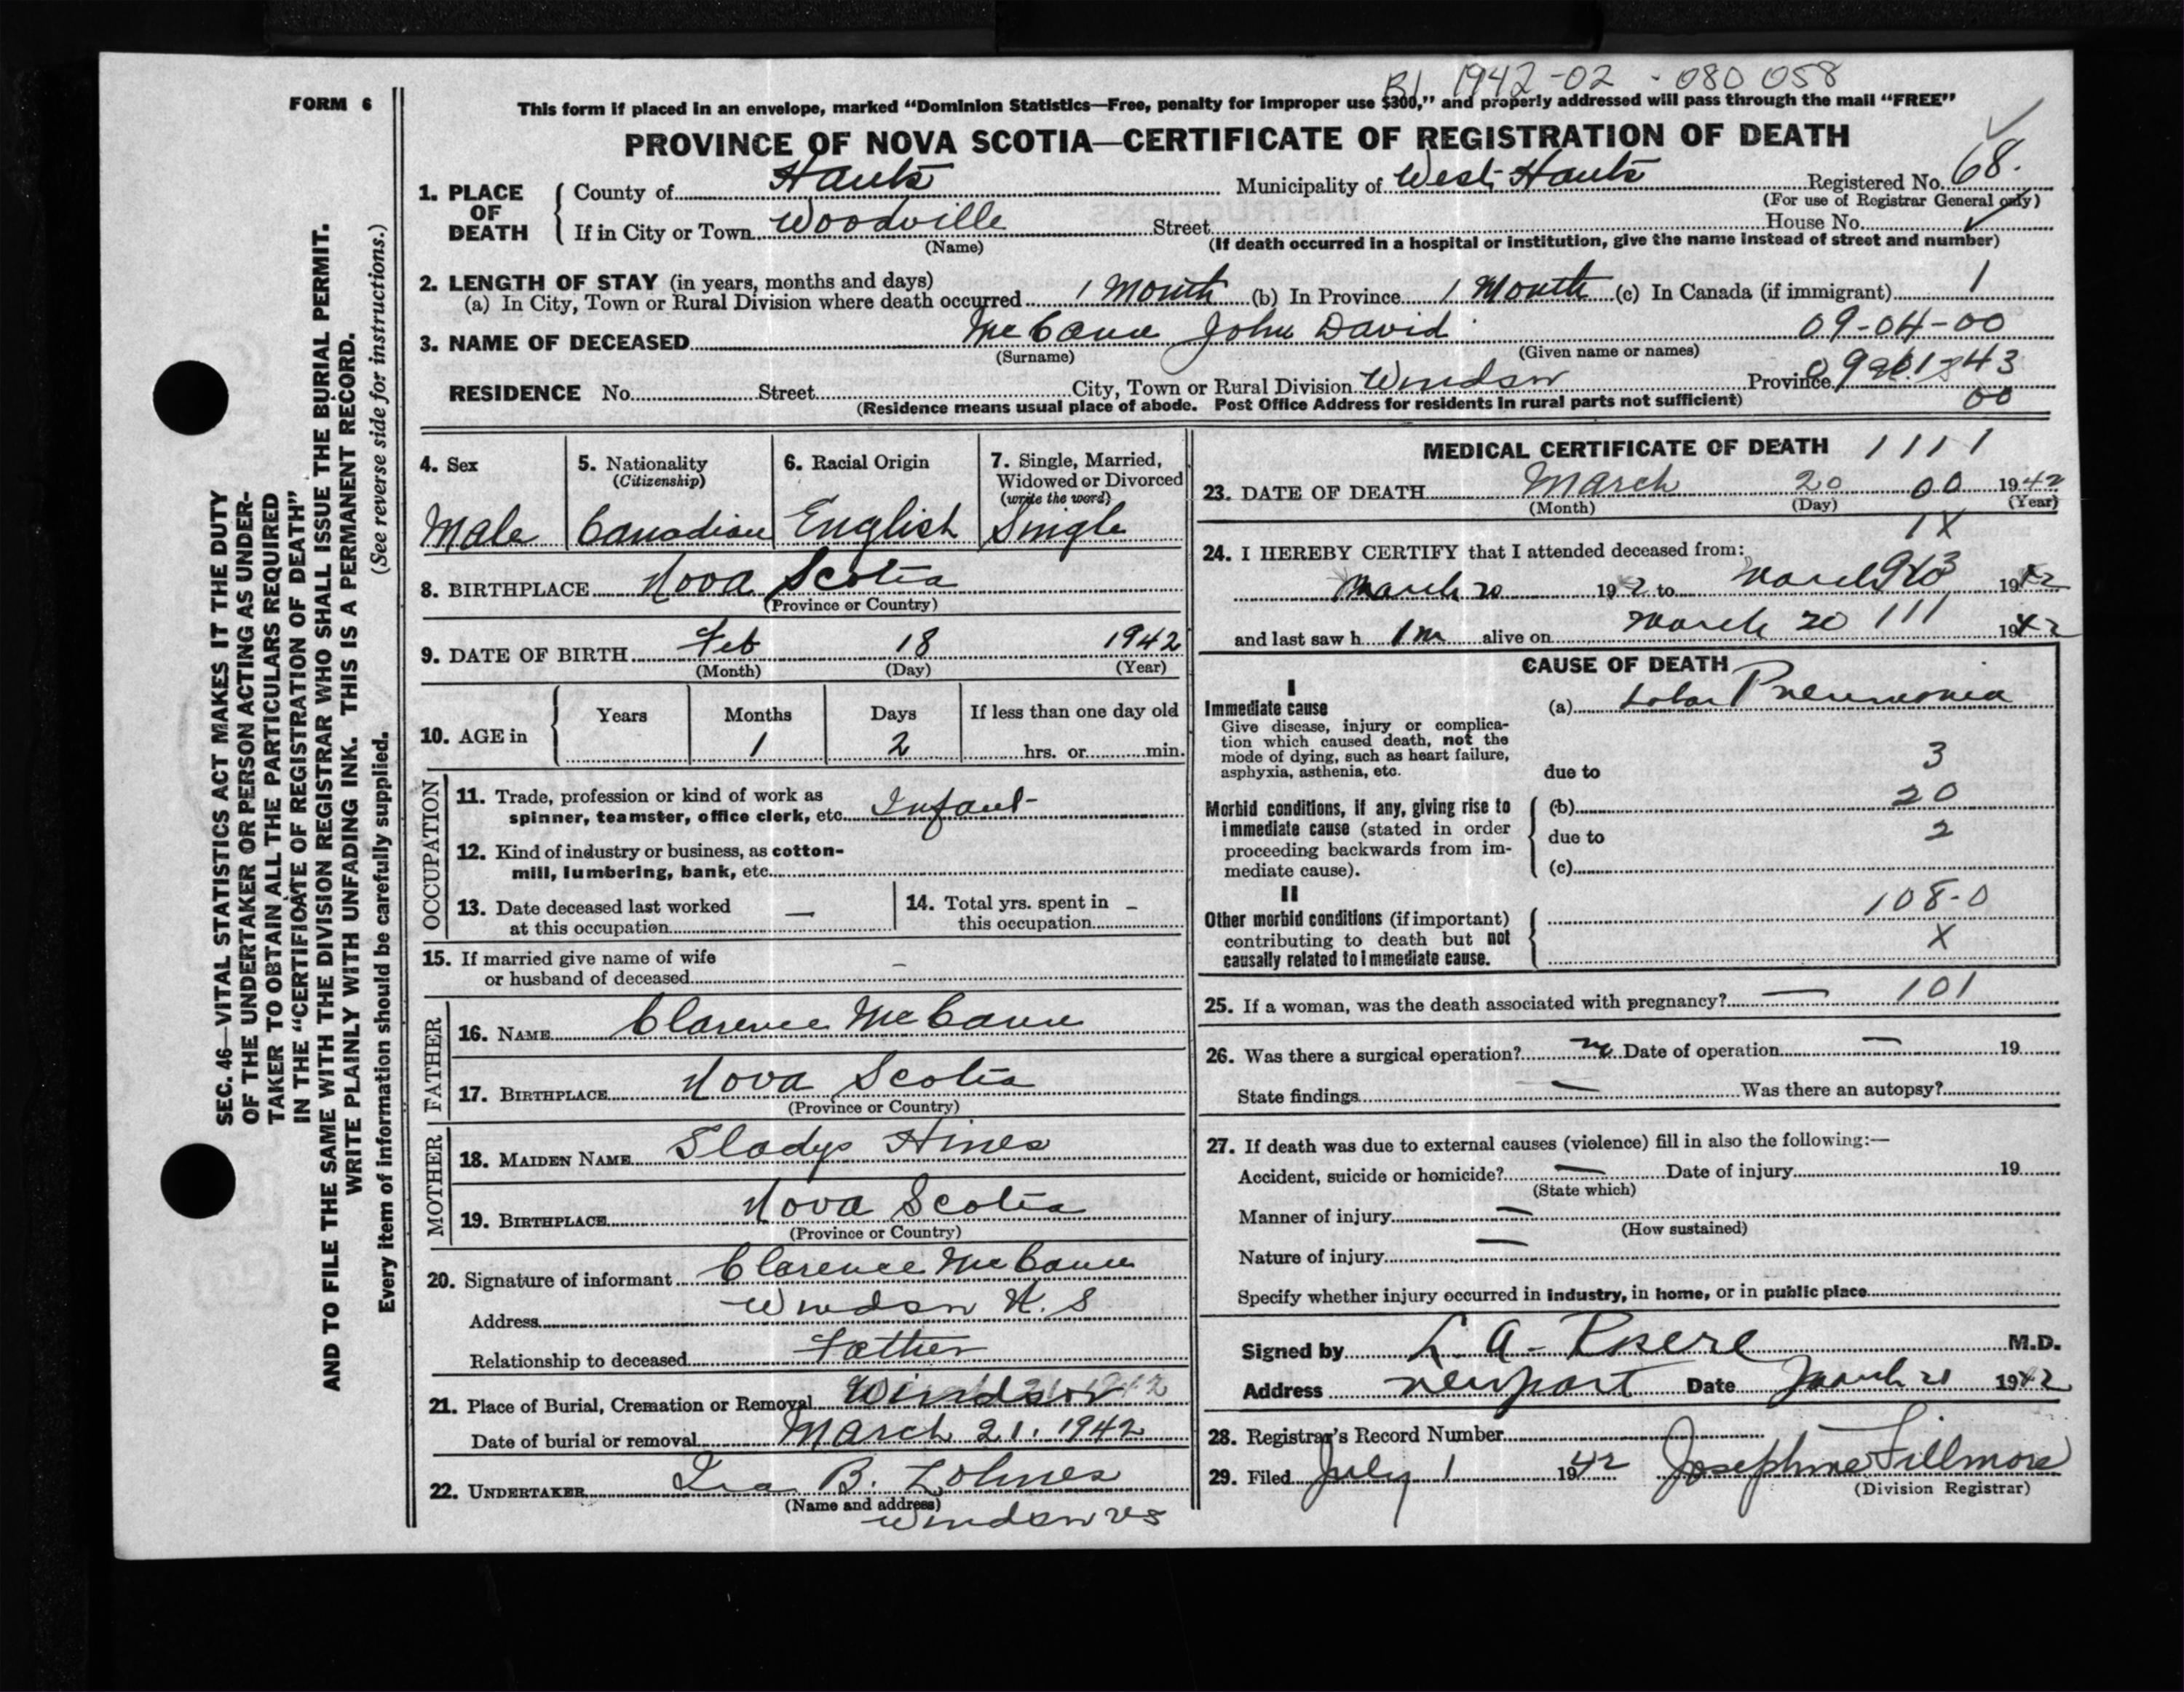 B1 1942-02-080058
FORM 6
This form if placed in an envelope, marked “Dominion Statistics—Free, penalty for improper use $300,” and properly addressed will pass through the mail “FREE”
PROVINCE OF NOVA SCOTIA—CERTIFICATE OF REGISTRATION OF DEATH
SEC. 46—VITAL STATISTICS ACT MAKES IT THE DUTY
OF THE UNDERTAKER OR PERSON ACTING AS UNDER-
TAKER TO OBTAIN ALL THE PARTICULARS REQUIRED
IN THE “CERTIFICATE OF REGISTRATION OF DEATH”
AND TO FILE THE SAME WITH THE DIVISION REGISTRAR WHO SHALL ISSUE THE BURIAL PERMIT.
WRITE PLAINLY WITH UNFADING INK. THIS IS A PERMANENT RECORD.
Every item of information should be carefully supplied. (See reverse side for instructions.)
1. PLACE OF DEATH County of Hants Municipality of West Hants Registered No. 68.
(For use of Registrar General only)
If in City or Town Woodville Street House No.
(Name) (If death occurred in a hospital or institution, give the name instead of street and number)
2. LENGTH OF STAY (in years, months and days)
(a) In City, Town or Rural Division where death occurred 1 Month (b) In Province 1 Month (c) In Canada (if immigrant) 1
3. NAME OF DECEASED McCann John David 09-04-00
(Surname) (Given name or names)
RESIDENCE No. Street City, Town or Rural Division Windsor Province 43
(Residence means usual place of abode. Post Office Address for residents in rural parts not sufficient) 00
4. Sex 5. Nationality 6. Racial Origin 7. Single, Married,
(Citizenship) Widowed or Divorced
(write the word)
Male Canadian English Single
8. BIRTHPLACE Nova Scotia
(Province or Country)
9. DATE OF BIRTH Feb 18 1942
(Month) (Day) (Year)
10. AGE in Years Months Days If less than one day old
1 2 hrs. or min.
OCCUPATION
11. Trade, profession or kind of work as
spinner, teamster, office clerk, etc. Infant
12. Kind of industry or business, as cotton-
mill, lumbering, bank, etc.
13. Date deceased last worked — 14. Total yrs. spent in –
at this occupation this occupation
15. If married give name of wife –
or husband of deceased
FATHER
16. NAME Clarence McCann
17. BIRTHPLACE Nova Scotia
(Province or Country)
MOTHER
18. MAIDEN NAME Gladys Hines
19. BIRTHPLACE Nova Scotia
(Province or Country)
20. Signature of informant Clarence McCann
Address Windsor N.S
Relationship to deceased Father
21. Place of Burial, Cremation or Removal Windsor
Date of burial or removal March 21. 1942
22. UNDERTAKER Ira B. Lohnes
(Name and address)
Windsor NS
MEDICAL CERTIFICATE OF DEATH 1111
23. DATE OF DEATH March 20 00 1942
(Month) (Day) (Year)
1X
24. I HEREBY CERTIFY that I attended deceased from:
March 20 1942 to March 1942
and last saw h im alive on March 20 111 1942
CAUSE OF DEATH
I
Immediate cause (a) Lobar Pneumonia
Give disease, injury or complica-
tion which caused death, not the
mode of dying, such as heart failure, 3
asphyxia, asthenia, etc. due to
Morbid conditions, if any, giving rise to (b) 20
immediate cause (stated in order due to 2
proceeding backwards from im-
mediate cause). (c)
II
Other morbid conditions (if important) 108-0
contributing to death but not X
causally related to immediate cause.
25. If a woman, was the death associated with pregnancy? — 101
26. Was there a surgical operation? no Date of operation — 19
State findings — Was there an autopsy?
27. If death was due to external causes (violence) fill in also the following:—
Accident, suicide or homicide? — Date of injury 19
(State which)
Manner of injury —
(How sustained)
Nature of injury —
Specify whether injury occurred in industry, in home, or in public place
Signed by L. A. M.D.
Address Newport Date March 21 1942
28. Registrar's Record Number
29. Filed July 1 1942 Josephine Fillmore
(Division Registrar)